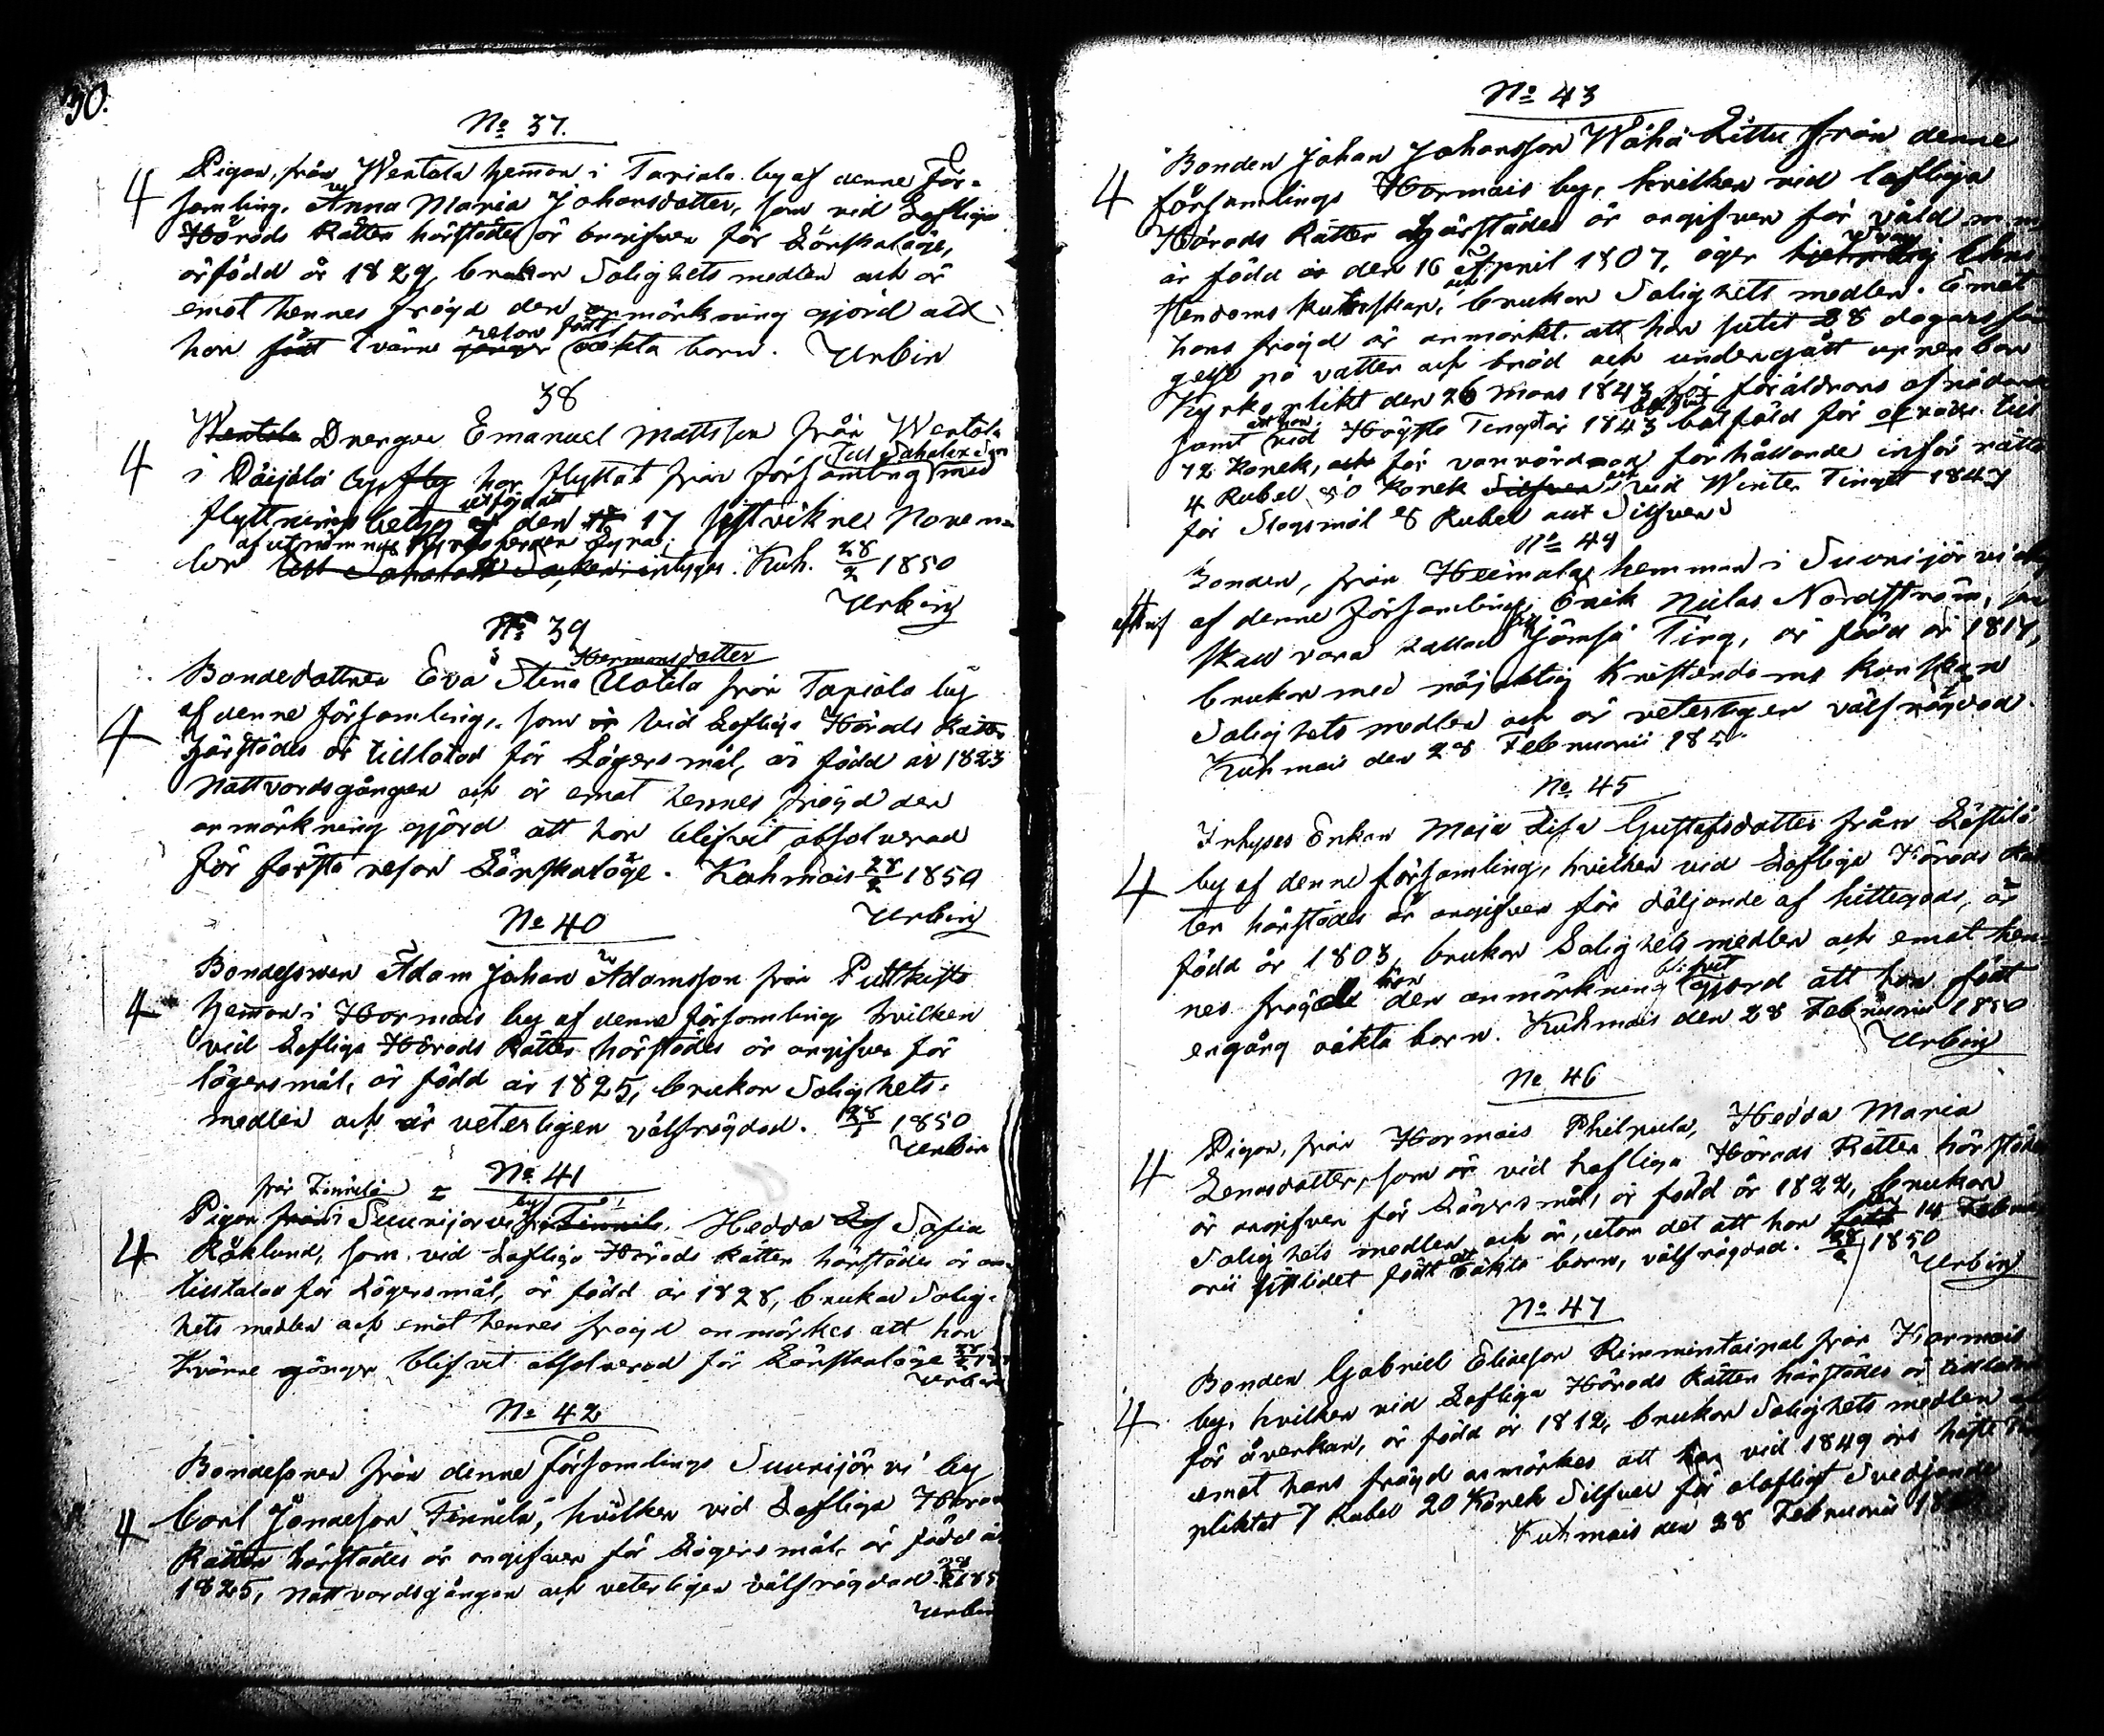 30.
No 37.
4
Pigan, från Wentola heman i Tariala by af denne För-
samling, Anna Maria Johansdotter, som vid Lofliga
Härads Rätten härstädes är angifven för Lönskaläge,
är född år 1829, brukar Salighets medlen och är
emot hennes frägd den anmärkning gjord att
hon tvänne resor födt oäkta barn. Urbin
38
4
Wentola Drengen Emanuel Mattsson från Wentola
i Päijälä by har flyttat från församling Till Sahalax med
flyttnings betyg utfärdadt den 17 sistvikne Novem-
ber intygar. Kuh. 28/2 1850
Urbin
No 39
Bondedottren Eva Stina Hermansdotter Uotila från Tariala by
4
af denne församling, som vid Lofliga Härads Rätten
härstädes är tilltalad för Lägersmål, är född år 1823
Nattvardsgången och är emot hennes frägd den
anmärkning gjord att hon blifvit absolverad
för första resan Lönskaläge. Kuhmois 28/2 1850
Urbin
No 40
Bondesonen Adam Johan Adamsson från Puttkisto
4
heman i Harmois by af denne församling hvilken
vid Lofliga Härads Rätten härstädes är angifven för
lägersmål, är född år 1825, brukar Salighets-
medlen och är veterligen välfrägdad. 28/2 1850
Urbin
No 41
från Finnilä
Pigan från Suurijärvi by Finnilä, Hedda Sofia
4
Röklund, som vid Lofliga Härads Rätten härstädes är
tilltalad för Lägersmål, är född år 1828, brukar Salig-
hets medlen och emot hennes frägd anmärkes att hon
tvänne gånger blifvit absolverad för Lönskaläge
Urbin
No 42
Bondesonen från denne Församlings Suurijärvi by
4
Carl Jönsson Finnilä, hvilken vid Lofliga Härads
Rätten härstädes är angifven för Lägersmål, är född år
1825, Nattvardsgången och veterligen välfrägdad. 28/2 185
Urbin
No 43
Bonden Johan Johansson Wähä Eittu från denne
4
församlings Harmois by, hvilken vid lofliga
Härads Rätten härstädes är angifven för våld m m
är född den 16 April 1807, äger svag Chri
stendoms kunskap, och brukar Salighets medlen. Emot
hans frägd är anmärkt, att han sutit 28 dagars fän
gelse på vatten och bröd och undergått uppenbar
Kyrkoplikt den 26 Mars 1843 för föräldrars
samt att han vid Hösте Tinget år 1843 blifvit botfäld för till
72 Kopek, för vanvördande förhållande inför rätta
4 Rubel 80 Kopek och vid Winter Tinget 1847
för Slagsmål 8 Rubel allt Silfver
No 44
Bonden, från Heimala hemman i Suurijärvi by
4
af denne Församling, Erik Niclas Nordström, som
skall vara kallad till Jämsä Ting, är född år 1817,
brukar med nöjaktig Kristendoms kunskap
Salighets medlen och är veterligen välfrägdad.
Kuhmois den 28 Februarii 185
No 45
Inhyses Enkan Maja Lisa Gustafsdotter från Lästilä
4
by af denne församling, hvilken vid Lofliga Härads Rät
ten härstädes är angifven för döljande af hittegods, är
född år 1803, brukar Salighets medlen och emot hen-
nes frägd den anmärkning blifvit gjord att hon födt
engång oäkta barn. Kuhmois den 28 Februarii 1850
Urbin
No 46
Pigan, från Harmois Philpula, Hedda Maria
4
Lenasdotter, som är vid lofliga Härads Rätten härstädes
är angifven för Lägersmål, är född år 1822, brukar
Salighets medlen och är, utom det att hon den 14 Febru
arii sistlidet födt ett oäkta barn, välfrägdad. 28/2 1850
Urbin
No 47
Bonden Gabriel Eliasson Rimmintaipal från Harmois
4
by, hvilken vid Lofliga Härads Rätten härstädes är tilltalad
för åverkan, är född år 1812, brukar Salighets medlen och
emot hans frägd anmärkes att han vid 1849 års höste Ting
pliktat 7 Rubel 20 Kopek Silfver för olofligt Svedjande
Kuhmois den 28 Februarii 18